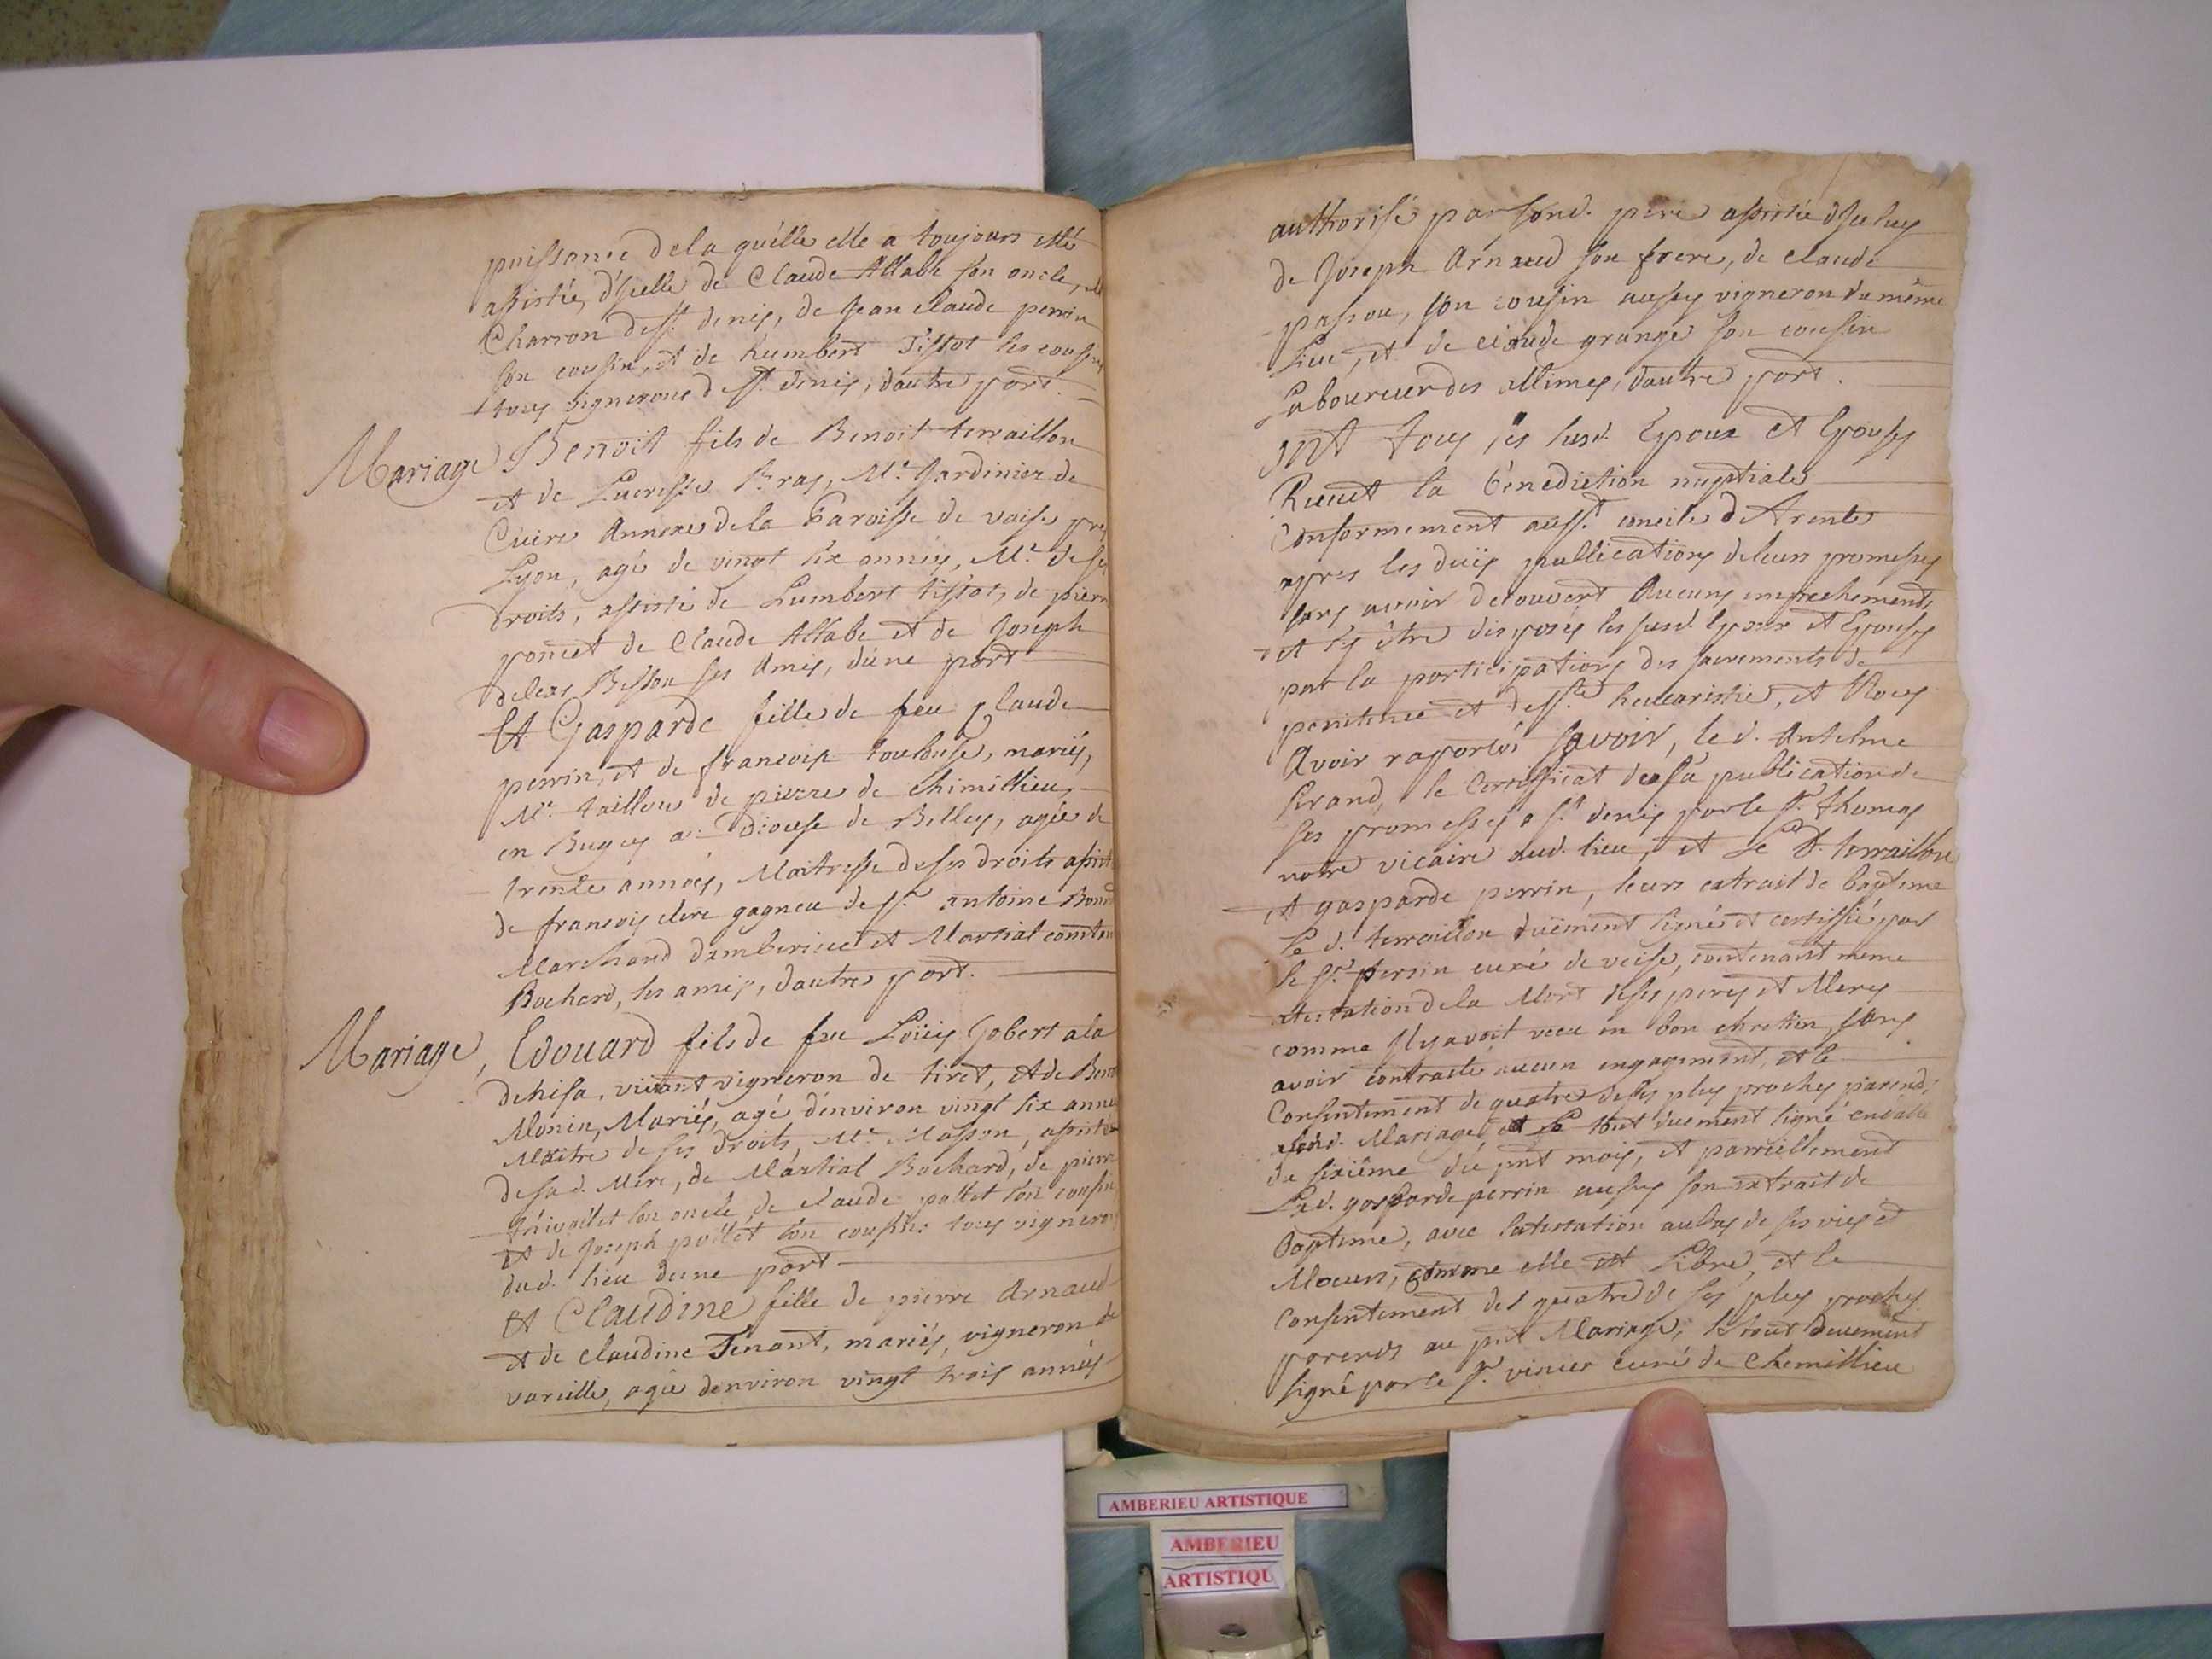 puissance de la quélle elle a toujours esté
assistée, d'Jcelle de Claude Allabe son oncle,
Charron de st. denis, de jean claude perrin
son cousin, et de humbert Tissot les cousins
tous vignerons de st. denis, dautre part.
Mariage Benoit fils de Benoit terraillon
et de Lucresse Bras, Me. Jardinier de
Cuire Annexe de la Paroisse de vaise pres
Lyon, agé de vingt six années, Me. de ses
droits, assisté de Lumbert tissot, de pierre
poncet de Claude Allabe et de Joseph
Besson ses Amis, d'une part
Et Gasparde fille de feu Claude
perrin, et de francoise toulouse, mariés,
Me. tailleur de pierre de Chimillieu,
en Bugey Diocese de Belley, agée de
trente années, Maitresse de ses droits assistée
de francois clerc gagneu de st. antoine
Marchand damberieu et Martial
Bochard, ses amis, dautre part.
Mariage, Edouard fils de feu Loüis Gobert a la
vivant vigneron de tiret, et de
Monin, Mariés, agé d'environ vingt six années
Maitre de ses droits, Me. Masson, assisté
de sa d. Mere, de Martial Bochard, de pierre
son oncle, de claude pollet son cousin
et de Joseph pollet son cousin tous vignerons
dud. liéu dune part
Et Claudine fille de pierre Arnaud
et de claudine Tenant, mariés, vigneron de
vareille, agée denviron vingt trois années
authorisé par sond. pere assistée d'Jceluy
de Joseph Arnaud son frere, de claude
passou, son cousin aussy vigneron du même
Lieu, et de claude grange son cousin
Laboureur des allimes, dautre part.
ont tous les susd. Epoux et Epouses
Receut la bénédiction nuptiale
Conformement au st. concile de Trente
apres les publications de leurs promesses
sans avoir decouvert Aucuns empechements
et s'être disposés les susd. Epoux et Epouses
par la participations des sacrements de
penitence et de ste. heucaristie, et Nous
Avoir raportés Savoir, le d. Antelme
Grand, le Certifficat de la publication de
ses promesses a st. denis par le sr. thomas
notre vicaire aud. lieu, et Le d. terraillon
et gasparde perrin, leurs extrait de bapteme
Le d. terraillon düement signé et certiffié par
le sr. persin curé de veise, contenant meme
attestation de la Mort de ses peres et Meres
comme Jl y avoit vecu en bon chretien, sans
avoir contracté aucun engagement, et le
Consentement de quatre de ses plus proches parends
Mariage, et Le tout düement signé en datte
du sixiême du pnt mois, et pareillement
Lad. gasparde perrin aussy son extrait de
Bapteme, avec latestation au bas de ses vies et
Moeurs, comme elle est Libre, et le
Consentement des quatre de ses plus proches
parends au pnt Mariage, le tout deuement
signé par le sr. vivier curé de Chemillieu
AMBERIEU ARTISTIQUE
AMBERIEU
ARTISTIQU